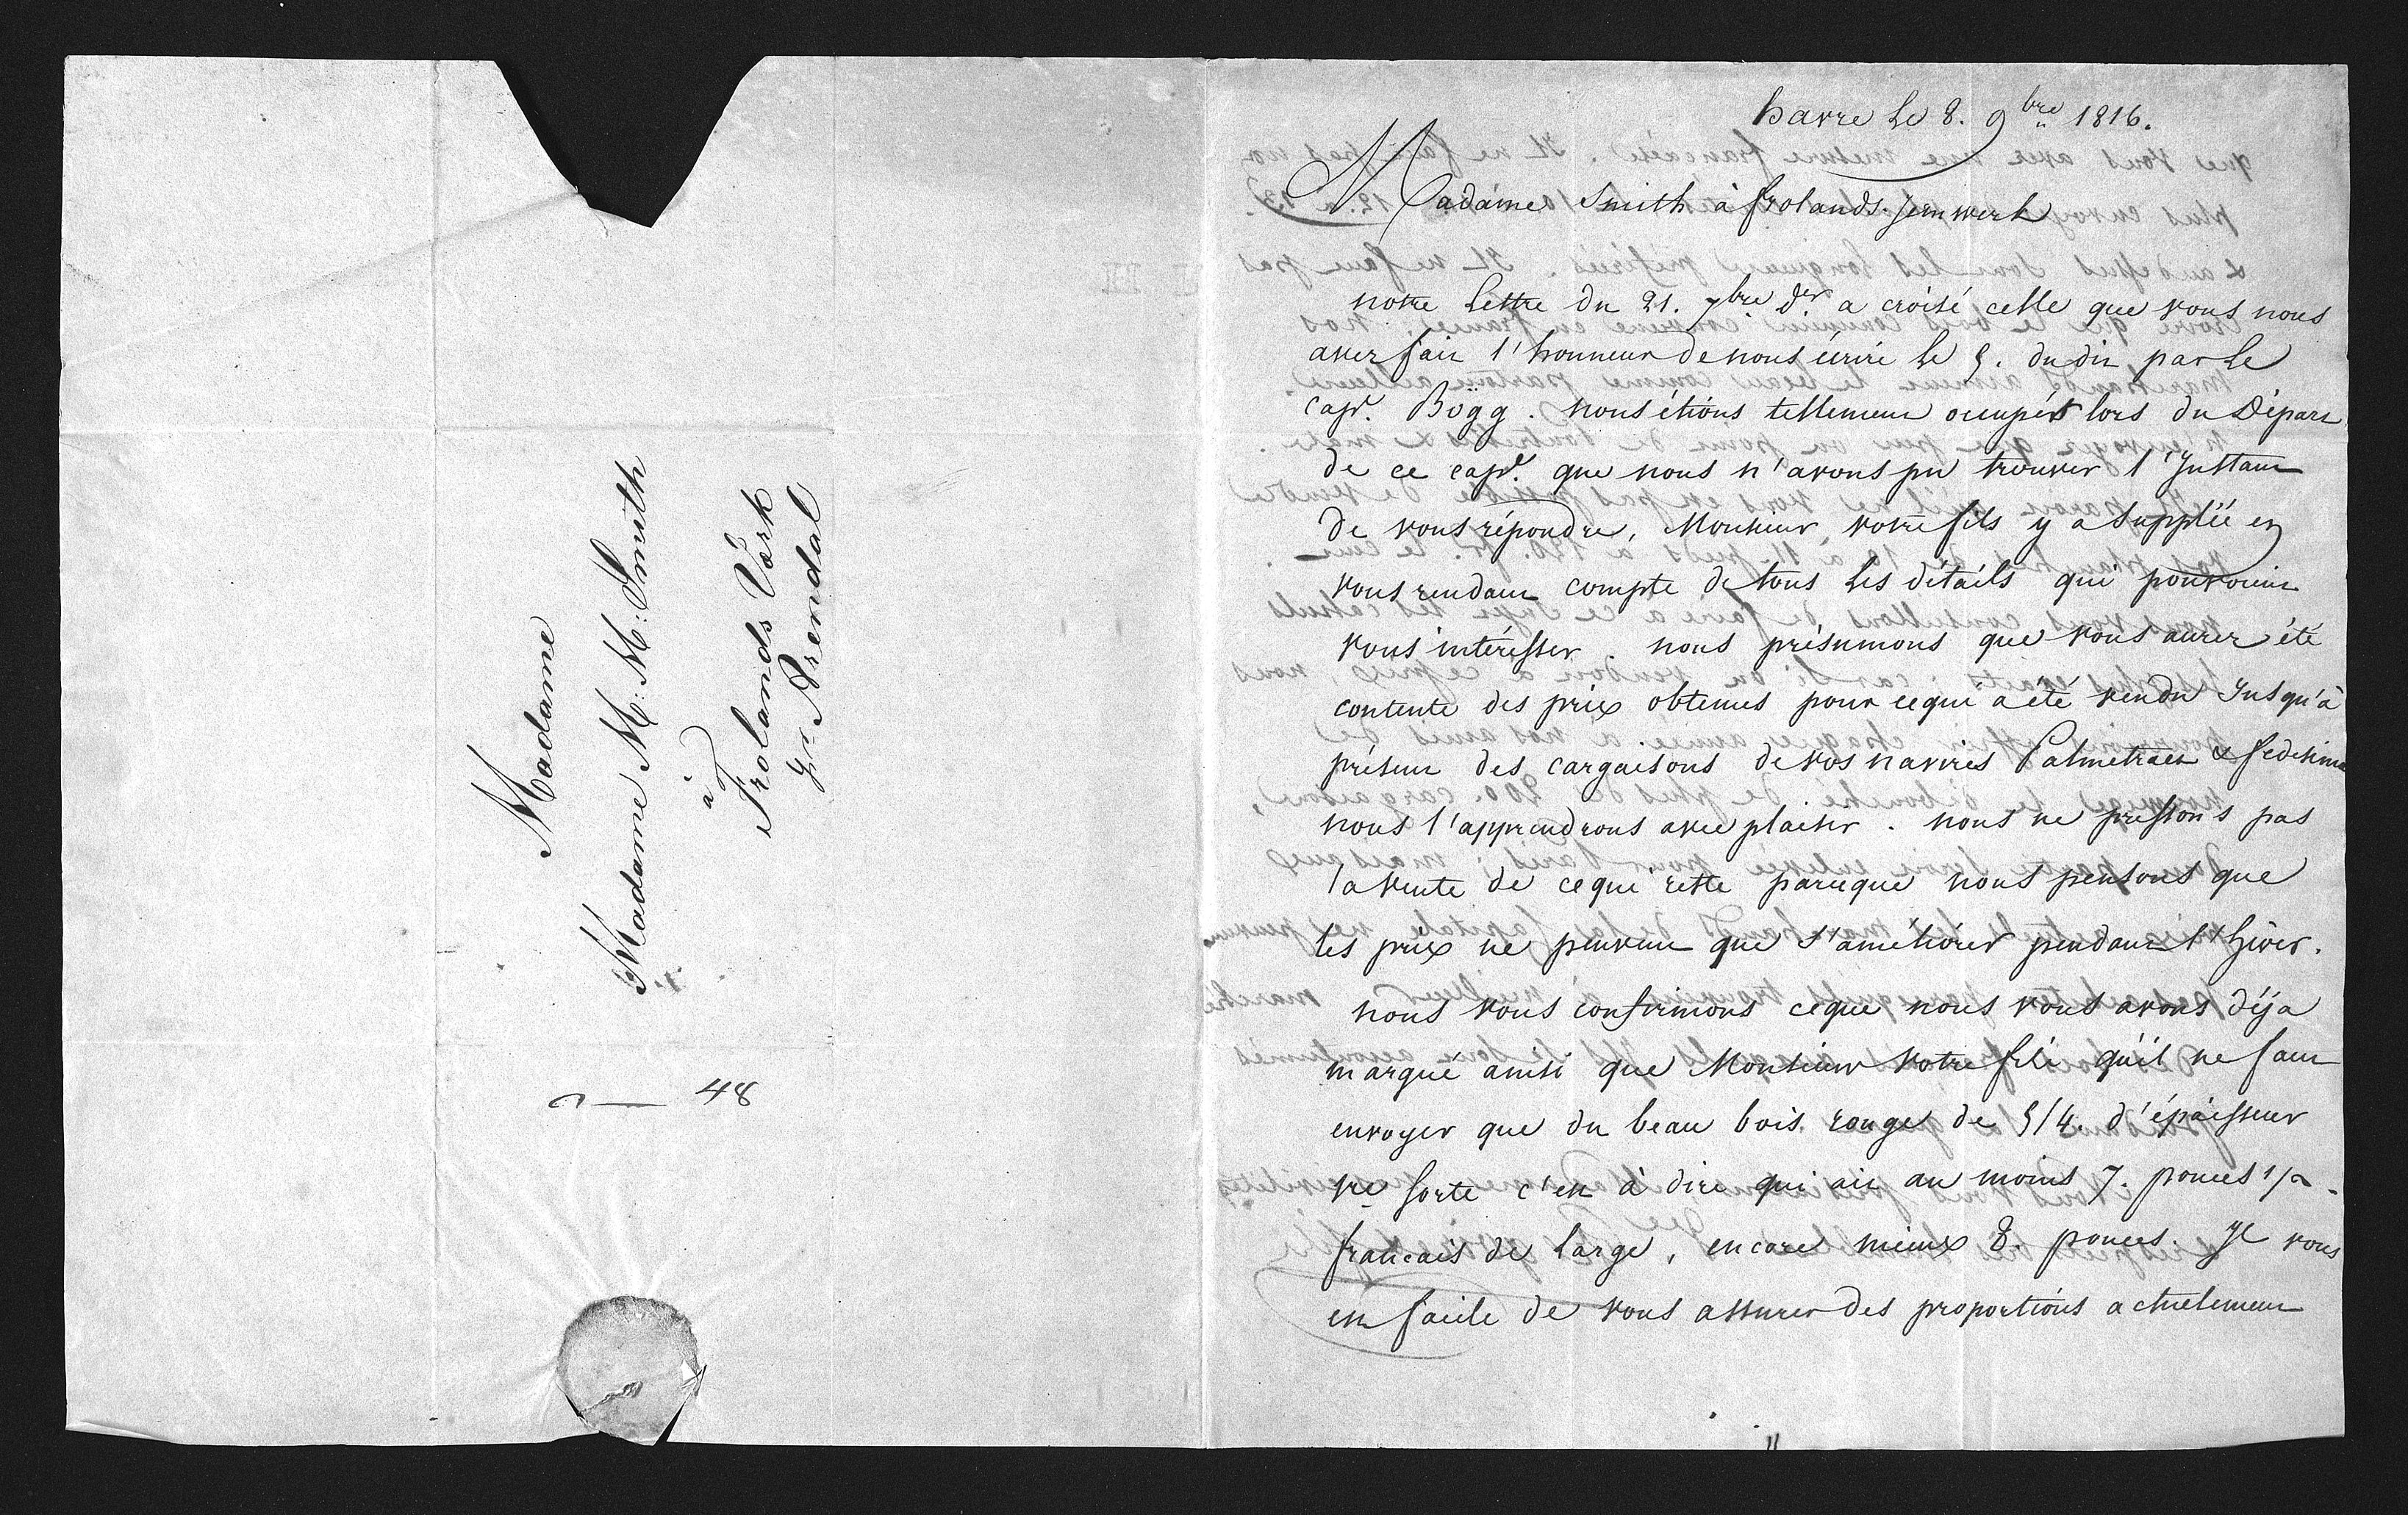 Madame
Madame M: M: Smith
à
Frolands Værk
pr. Arendal
48
havre Le 8. 9bre 1816.
Madame Smith à frolands Jernwerk
notre Lettre du 21. 7bre der a croisé celle que vous nous
avez fait l'honneur de nous écrire Le 5. du dit par Le
capne. Bögg. nous étions tellement occupés lors du Départ
de ce capne. que nous n'avons pu trouver l'Instant
de vous répondre, Monsieur votre fils y a suppléé en
vous rendant compte de tous Les détails qui pouvoient
vous intéresser. nous présumons que vous aurez été
contente des prix obtenus pour ce qui a été vendu Jusqu'à
présent des cargaisons de vos navires Palmetraet &
nous l'apprendrons avec plaisir. nous ne pressons pas
la vente de ce qui reste parceque nous pensons que
les prix ne peuvent que s'améliorer pendant l'hiver.
nous vous confirmons ceque nous vous avons déja
marqué ainsi que Monsieur Votre fils qu'il ne faut
envoyer que du beau bois rouge de 5/4. d'épaisseur
1re sorte c'est à dire qui ait au moins 7. pouces 1/2
francais de large, encore mieux 8. pouces. Il vous
est facile de vous assurer des proportions actuelement